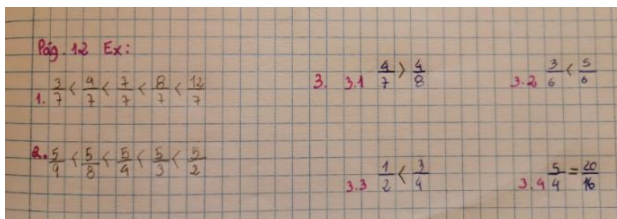 Pág. 12 Ex:
1. 3/7 < 4/7 < 7/7 < 8/7 < 12/7
2. 5/9 < 5/8 < 5/4 < 5/3 < 5/2
3. 3.1 4/7 > 4/8
3.2 3/6 < 5/6
3.3 1/2 < 3/4
3.4 5/4 = 20/16